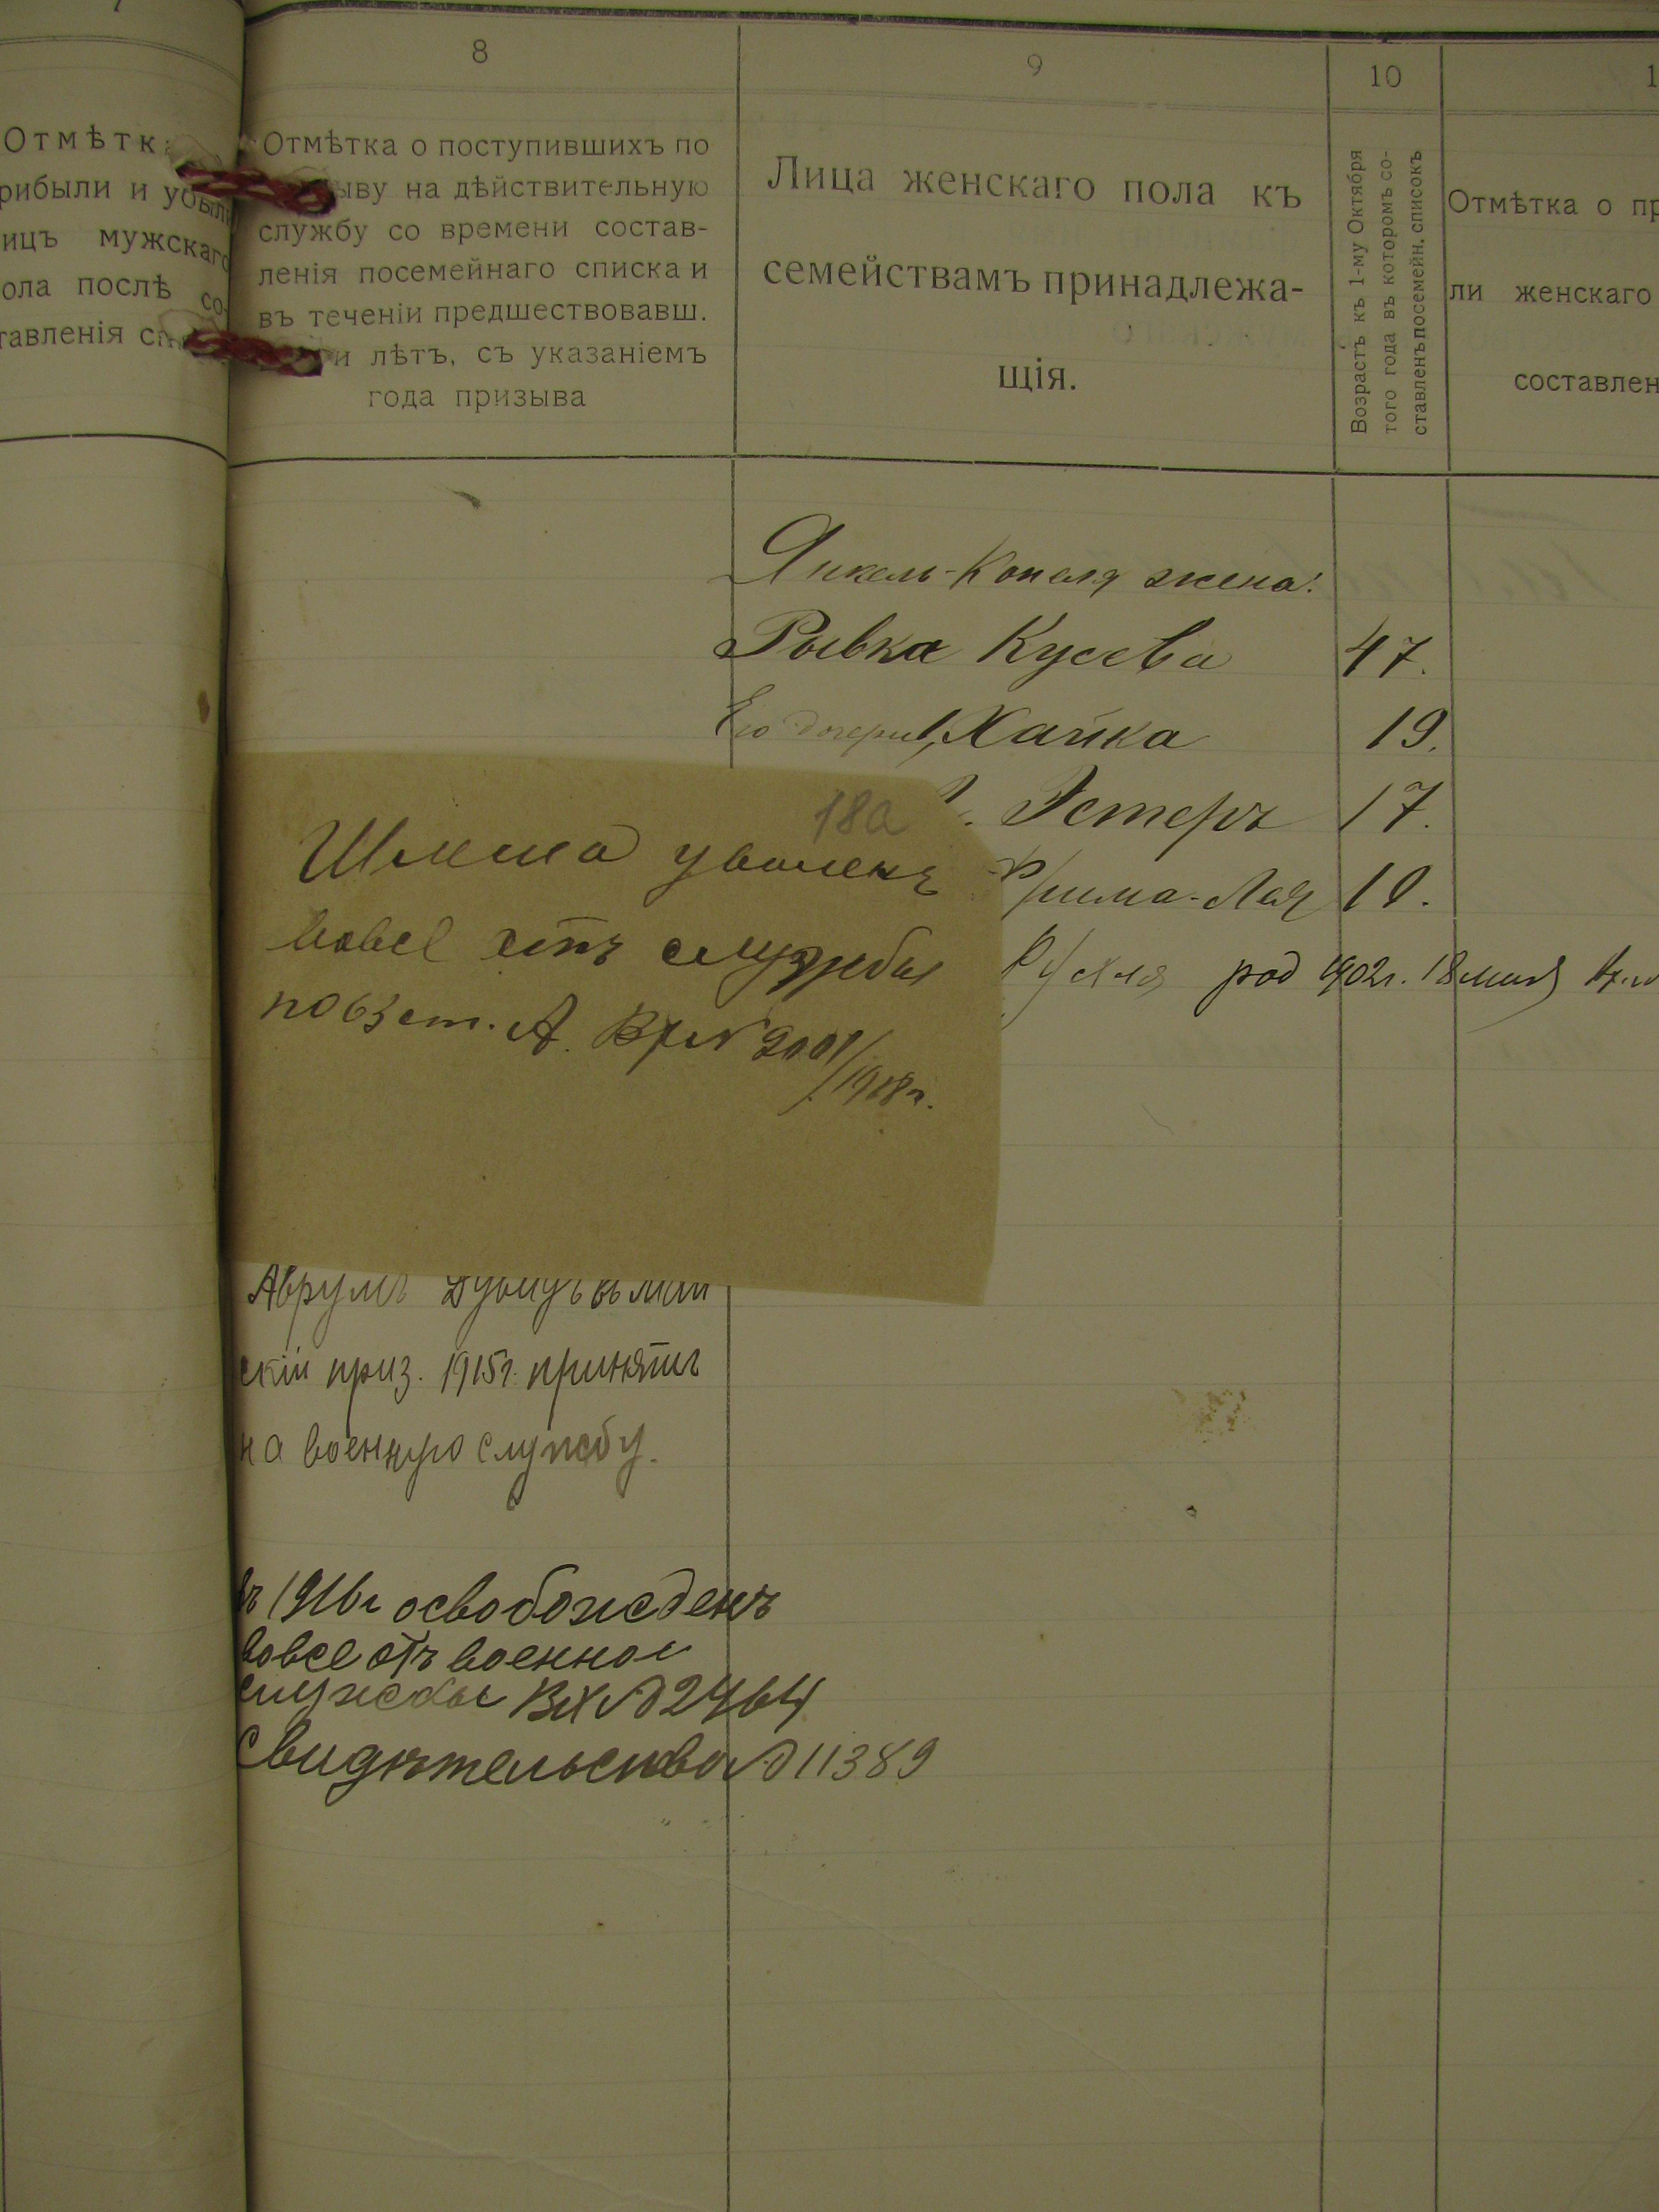 8
9
10
Отмѣтка
рибыли и убыли
ицъ мужскаго
ола послѣ со-
тавленія
Отмѣтка о поступившихъ по
ыву на дѣйствительную
службу со времени состав-
ленія посемейнаго списка и
въ теченіи предшествовавш.
и лѣтъ, съ указаніемъ
года призыва
Лица женскаго пола къ
семействамъ принадлежа-
щія.
Возрастъ къ 1-му Октября
того года въ которомъ со-
ставленъ посемейн. списокъ
Отмѣтка о пр
ли женскаго
составлен
Янкель-Копеля жена:
Рывка Кусева 47.
Его дочери 1, Хайка 19.
Эстеръ 17.
Фрима-Лея 10.
Рухля род 1902г. 18 мая
18а
Шлема уволенъ
вовсе отъ службы
по 63 ст. А. Вх № 2001/1908 г.
Аврумъ въ
скій приз. 1915г. принятъ
на военную службу.
въ 1916г освобожденъ
вовсе отъ военной
службы Вх № 2464
Свидѣтельство № 11389